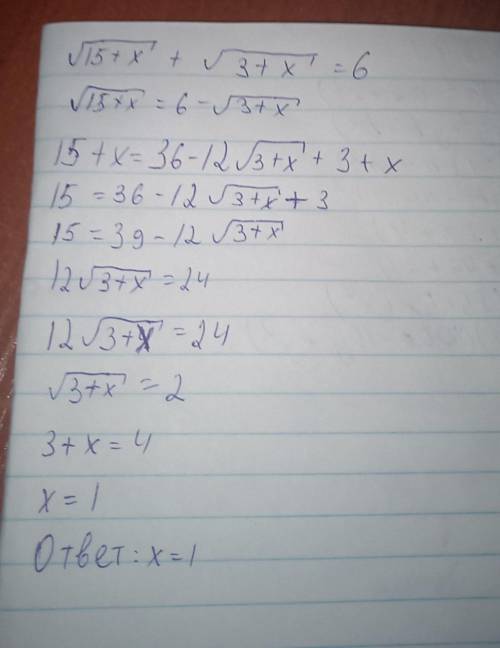 √15+x + √3+x = 6
√15+x = 6-√3+x
15+x=36-12√3+x + 3+x
15 =36-12√3+x+3
15=39-12√3+x
12√3+x =24
12√3+x =24
√3+x =2
3+x=4
x=1
Ответ: x=1